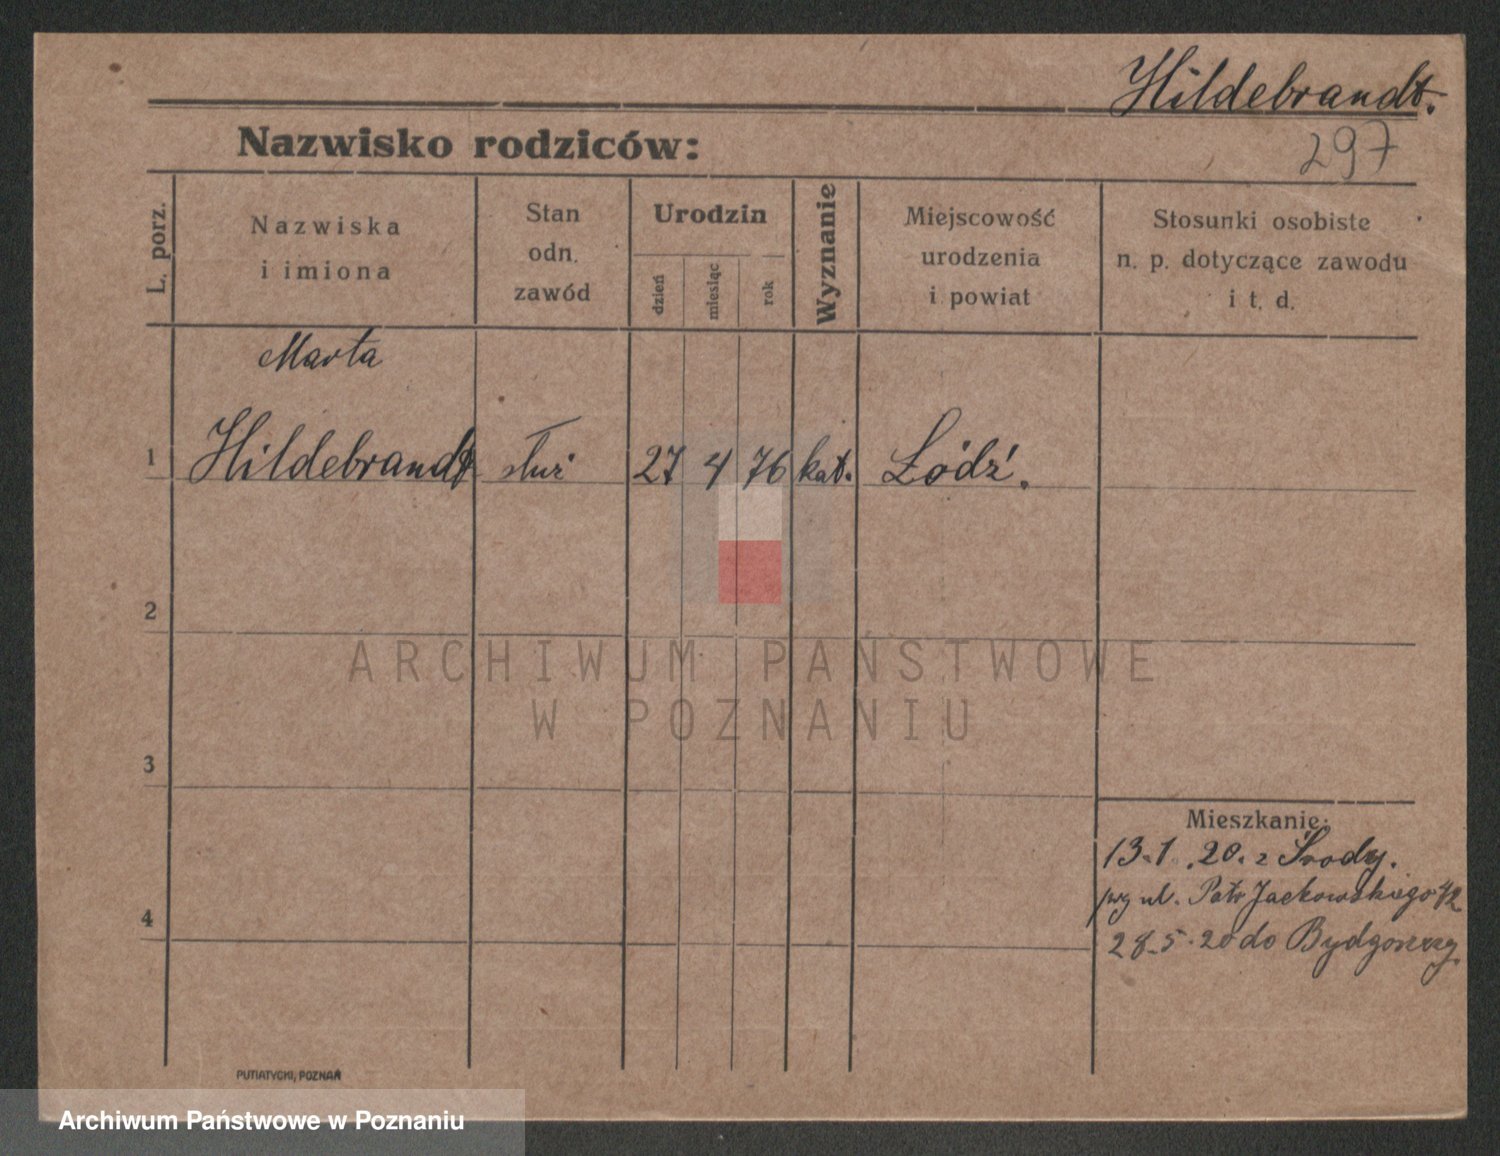 Hildebrandt.
Nazwisko rodziców:
297
L. porz.
Nazwiska
i imiona
Stan
odn.
zawód
Urodzin
dzień
miesiąc
rok
Wyznanie
Miejscowość
urodzenia
i powiat
Stosunki osobiste
n. p. dotyczące zawodu
i t. d.
Marta
1 Hildebrandt służ 27 4 76 kat. Łódź.
2
ARCHIWUM PAŃSTWOWE
W POZNANIU
3
Mieszkanie:
13.1.20. z Środy.
przy ul. Patr Jackowskiego 42
4
28.5.20 do Bydgoszczy.
PUTIATYCKI, POZNAŃ
Archiwum Państwowe w Poznaniu